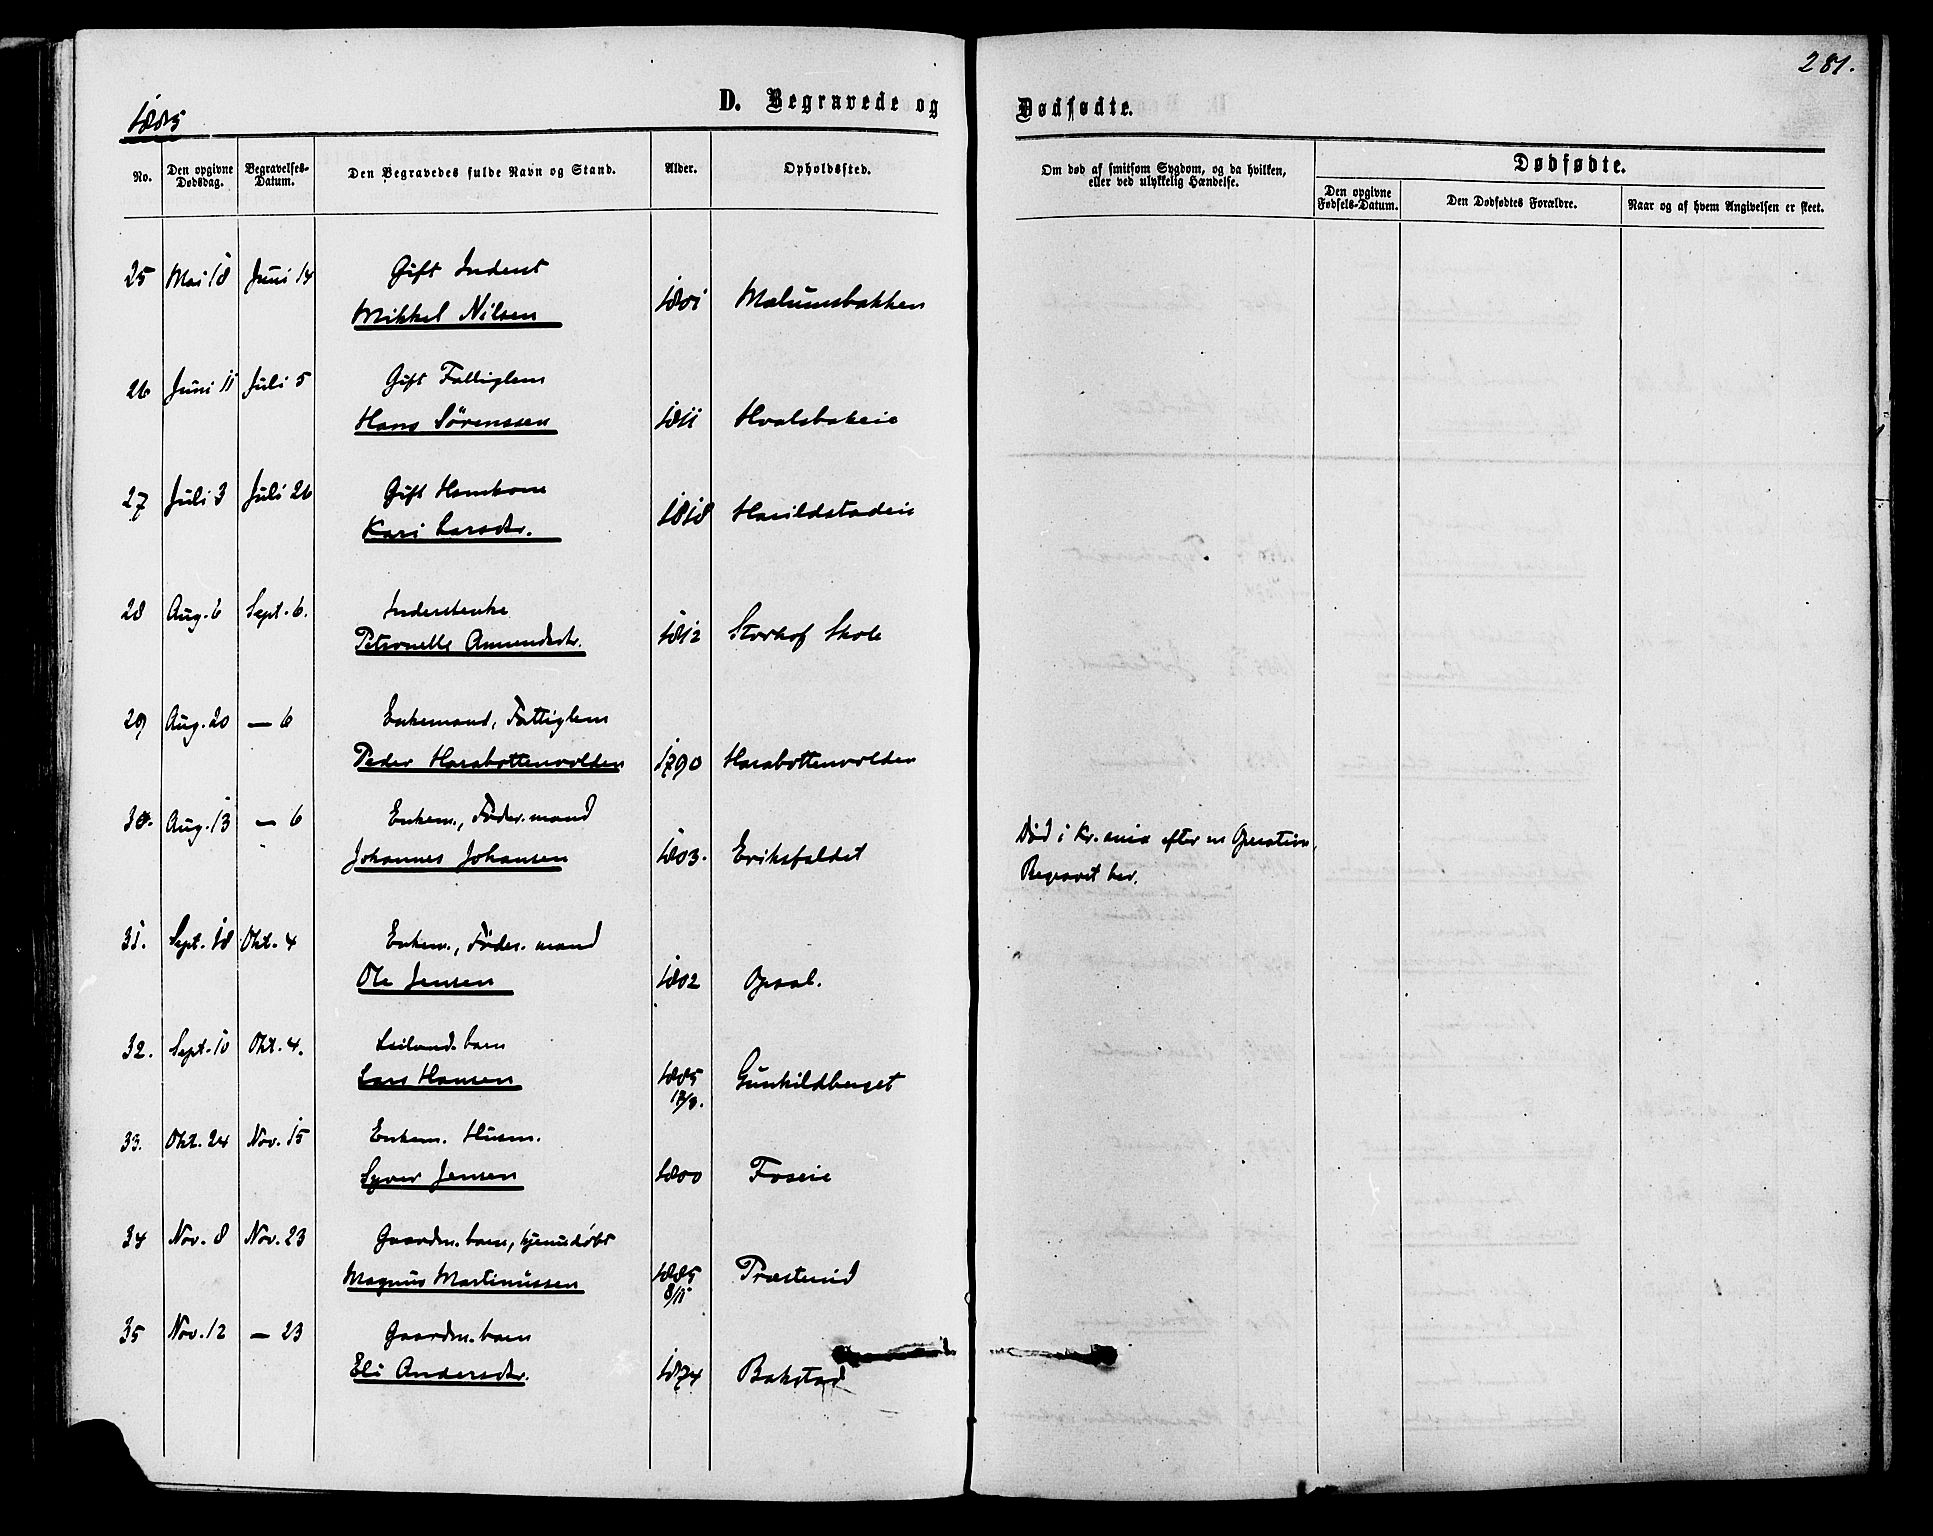 281.
1885
D. Begravede og Dødfødte.
No.
Den opgivne Dødsdag.
Begravelses-Datum.
Den Begravedes fulde Navn og Stand.
Alder.
Opholdssted.
Om død af smitsom Sygdom, og da hvilken, eller ved ulykkelig Hændelse.
Dødfødte.
Den opgivne Fødsels-Datum.
Den Dødfødtes Forældre.
Naar og af hvem Angivelsen er skeet.
25 Mai 18 Juni 14 Gift Inderst
Mikkel Nilsen 1801 Mælumsbakken
26 Juni 11 Juli 5 Gift Fattiglem
Hans Sørenssen 1811 Hvalsbakeie
27 Juli 3 Juli 26 Gift Huskone
Kari Larsdtr. 1818 Harildstadeie
28 Aug. 6 Sept. 6. Inderstenke
Petronelle Amundsdtr. 1812 Storhof Skole
29 Aug. 20 — 6 Enkemand, Fattiglem
Peder Harabottenvolden 1790 Harabottenvolden
30. Aug. 13 — 6 Enkem., Føder.mand
Johannes Johansen 1803. Eriksfaldet Død i Kr.ania efter en Operation,
Begravet her.
31. Sept. 18 Okt. 4 Enkem., Føder. mand
Ole Jensen 1802 Opsal.
32. Sept. 10 Okt. 4. Leilænd. barn
Lars Hansen 1885 Gunhildberget
33. Okt. 24 Nov. 15 Enkem. Husm.
Syver Jensen 1800 Foseie
34 Nov. 8 Nov. 23 Gaardm. barn, hjemdøbt
Magnus Martinussen 1885 8/11 Præsterud
35 Nov. 12 — 23 Gaardm. barn
Eli Andersdtr. 1874 Bakstad